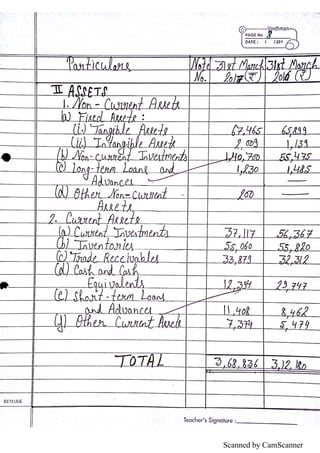 Vardhman
PAGE No 8
DATE : / /201
Particulars Note No. 31st March 2017 (₹) 31st March 2016 (₹)
II ASSETS
1. Non-Current Assets
(a) Fixed Assets :
(i) Tangible Assets 67,465 65,899
(ii) Intangible Assets 2,009 1,139
(b) Non-current Investments 1,40,700 55,475
(c) Long-term Loans and 1,830 1,485
Advances
(d) Other Non-Current 200
Assets
2. Current Assets
(a) Current Investments 37,117 56,367
(b) Inventories 55,060 55,820
(c) Trade Receivables 33,879 32,312
(d) Cash and Cash
Equivalents 12,394 29,747
(e) Short-term Loans
and Advances 11,408 8,462
(f) Other Current Assets 7,374 5,474
TOTAL 3,68,836 3,12,180
Teacher's Signature :
Scanned by CamScanner